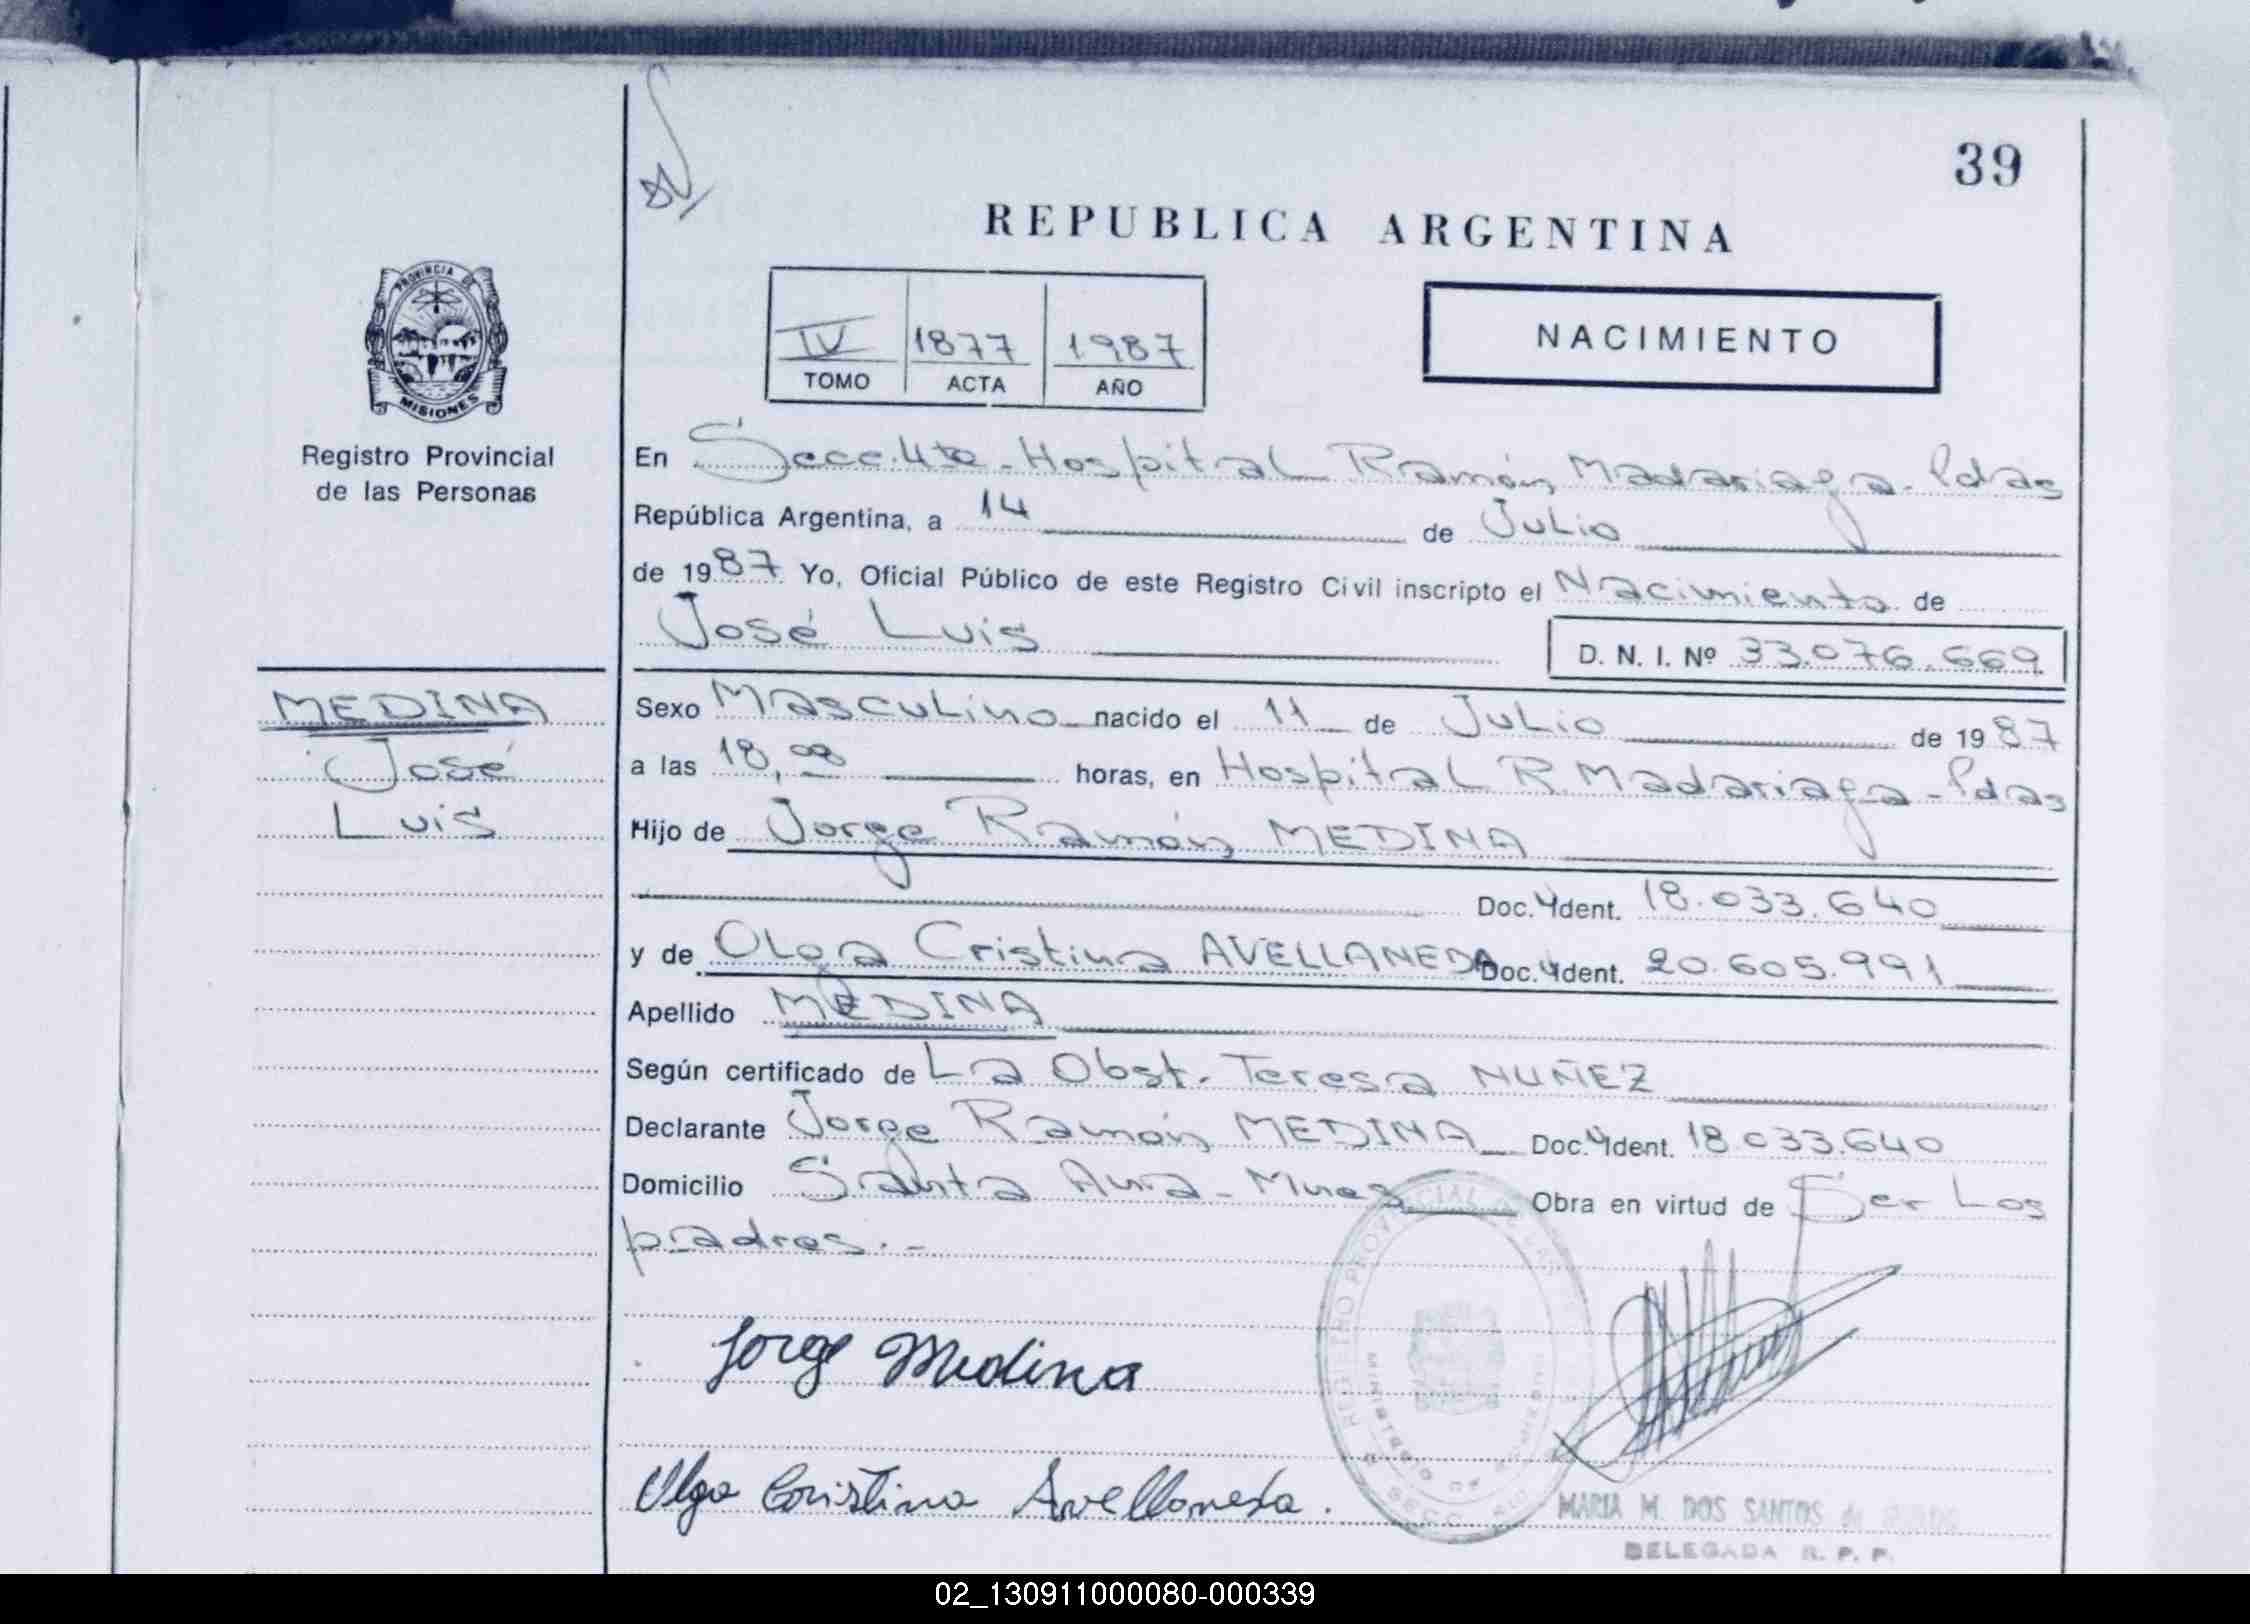 39
REPUBLICA ARGENTINA
PROVINCIA DE
MISIONES
IV 1877 1987
TOMO ACTA AÑO
NACIMIENTO
Registro Provincial
de las Personas
En Secc. 4ta - Hospital Ramón Madariaga - Pdas
República Argentina, a 14 de Julio
de 1987 Yo, Oficial Público de este Registro Civil inscripto el Nacimiento de
José Luis D. N. I. Nº 33.076.669
MEDINA
José
Luis
Sexo Masculino nacido el 11 de Julio de 1987
a las 18,08 horas, en Hospital R. Madariaga - Pdas
Hijo de Jorge Ramón MEDINA
Doc. Ydent. 18.033.640
y de Olga Cristina AVELLANEDA Doc. Ydent. 20.605.991
Apellido MEDINA
Según certificado de La Obst. Teresa NUÑEZ
Declarante Jorge Ramón MEDINA Doc. Ydent. 18.033.640
Domicilio Santa Ana - Mnes Obra en virtud de Ser Los
padres.-
REGISTRO PROVINCIAL DE LAS
MINISTERIO DE GOBIERNO
Jorge Medina
Olga Cristina Avellaneda.
MARIA M. DOS SANTOS de
DELEGADA R. P. P.
02_130911000080-000339